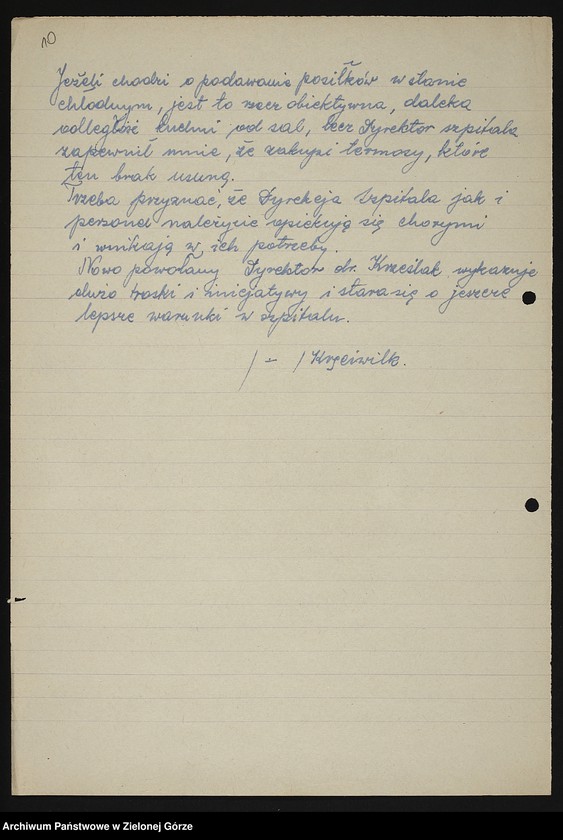 10
Jeżeli chodzi o podawanie posiłków w stanie
chłodnym, jest to rzecz obiektywna, daleka
odległość kuchni od sal, lecz Dyrektor szpitala
zapewnił mnie, że zakupi termosy, które
ten brak usuną.
Trzeba przyznać, że Dyrekcja Szpitala jak i
personel należycie opiekują się chorymi
i wnikają w ich potrzeby.
Nowo powołany Dyrektor dr. Krześlak wykazuje
dużo troski i inicjatywy i stara się o jeszcze
lepsze warunki w szpitalu.
/ - / Kręciwilk.
Archiwum Państwowe w Zielonej Górze